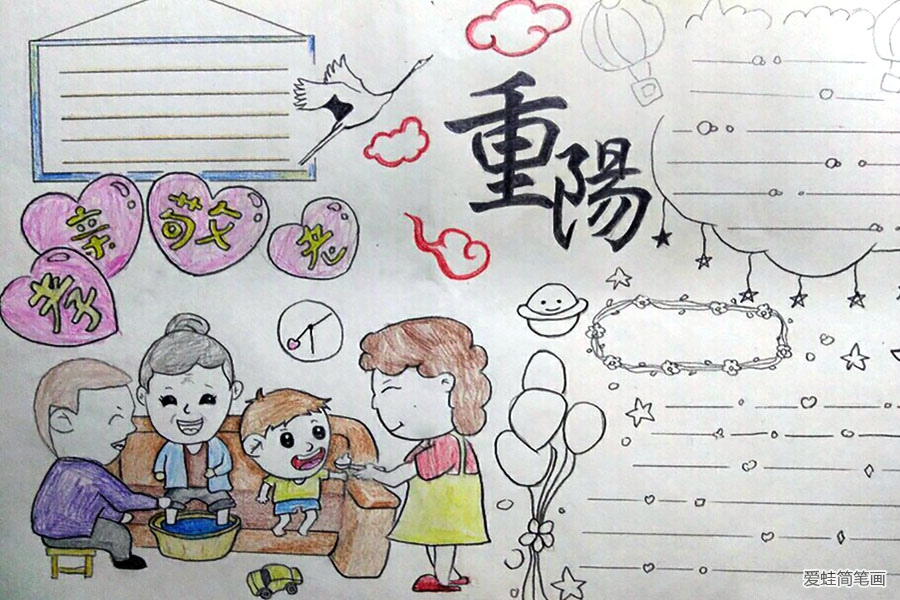 重陽
孝亲敬老
爱蛙简笔画